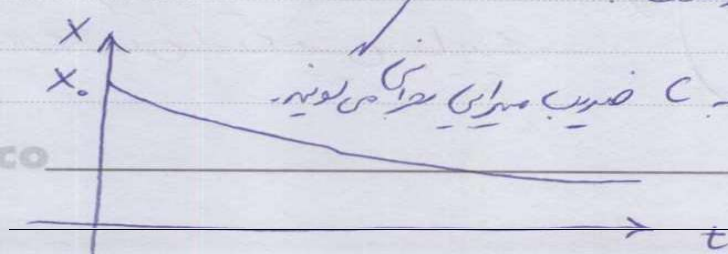 X
X₀
C ضریب میرایی بحرانی می‌گویند.
co
t